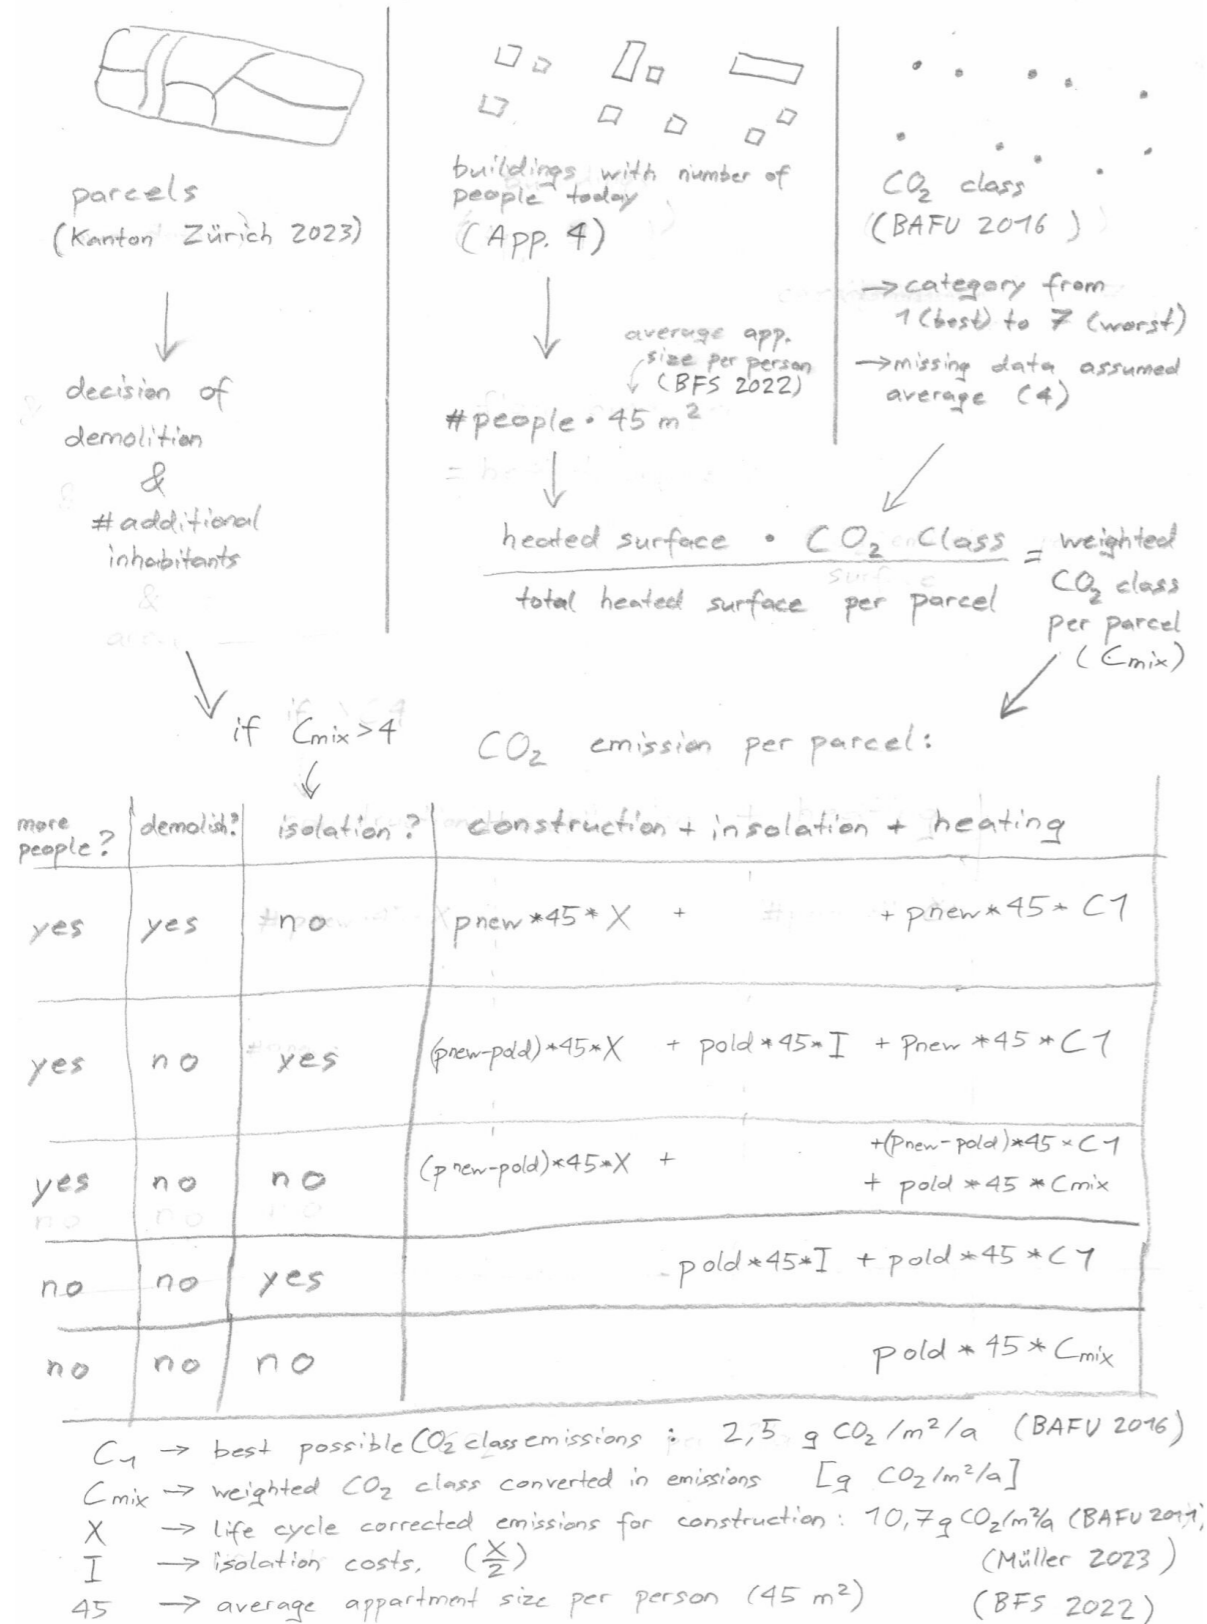 parcels
(Kanton Zürich 2023)
decision of
demolition
&
#additional
inhabitants
buildings with number of
people today
(App. 4)
average app.
size per person
(BFS 2022)
#people • 45 m²
CO₂ class
(BAFU 2016)
→ category from
1 (best) to 7 (worst)
→ missing data assumed
average (4)
heated surface • CO₂ Class
total heated surface per parcel
= weighted
CO₂ class
per parcel
(Cmix)
if Cmix>4
CO₂ emission per parcel:
more people? demolish? isolation? construction + insolation + heating
yes yes no pnew*45*X + + pnew*45*C1
yes no yes (pnew-pold)*45*X + pold*45*I + Pnew*45*C1
yes no no (pnew-pold)*45*X + +(pnew-pold)*45*C1
+ pold*45*Cmix
no no yes pold*45*I + pold*45*C1
no no no pold*45*Cmix
C1 → best possible CO₂ class emissions : 2,5 g CO₂/m²/a (BAFU 2016)
Cmix → weighted CO₂ class converted in emissions [g CO₂/m²/a]
X → life cycle corrected emissions for construction: 10,7g CO₂/m²/a (BAFU 2011,
I → isolation costs. (X/2) (Müller 2023)
45 → average appartment size per person (45 m²) (BFS 2022)